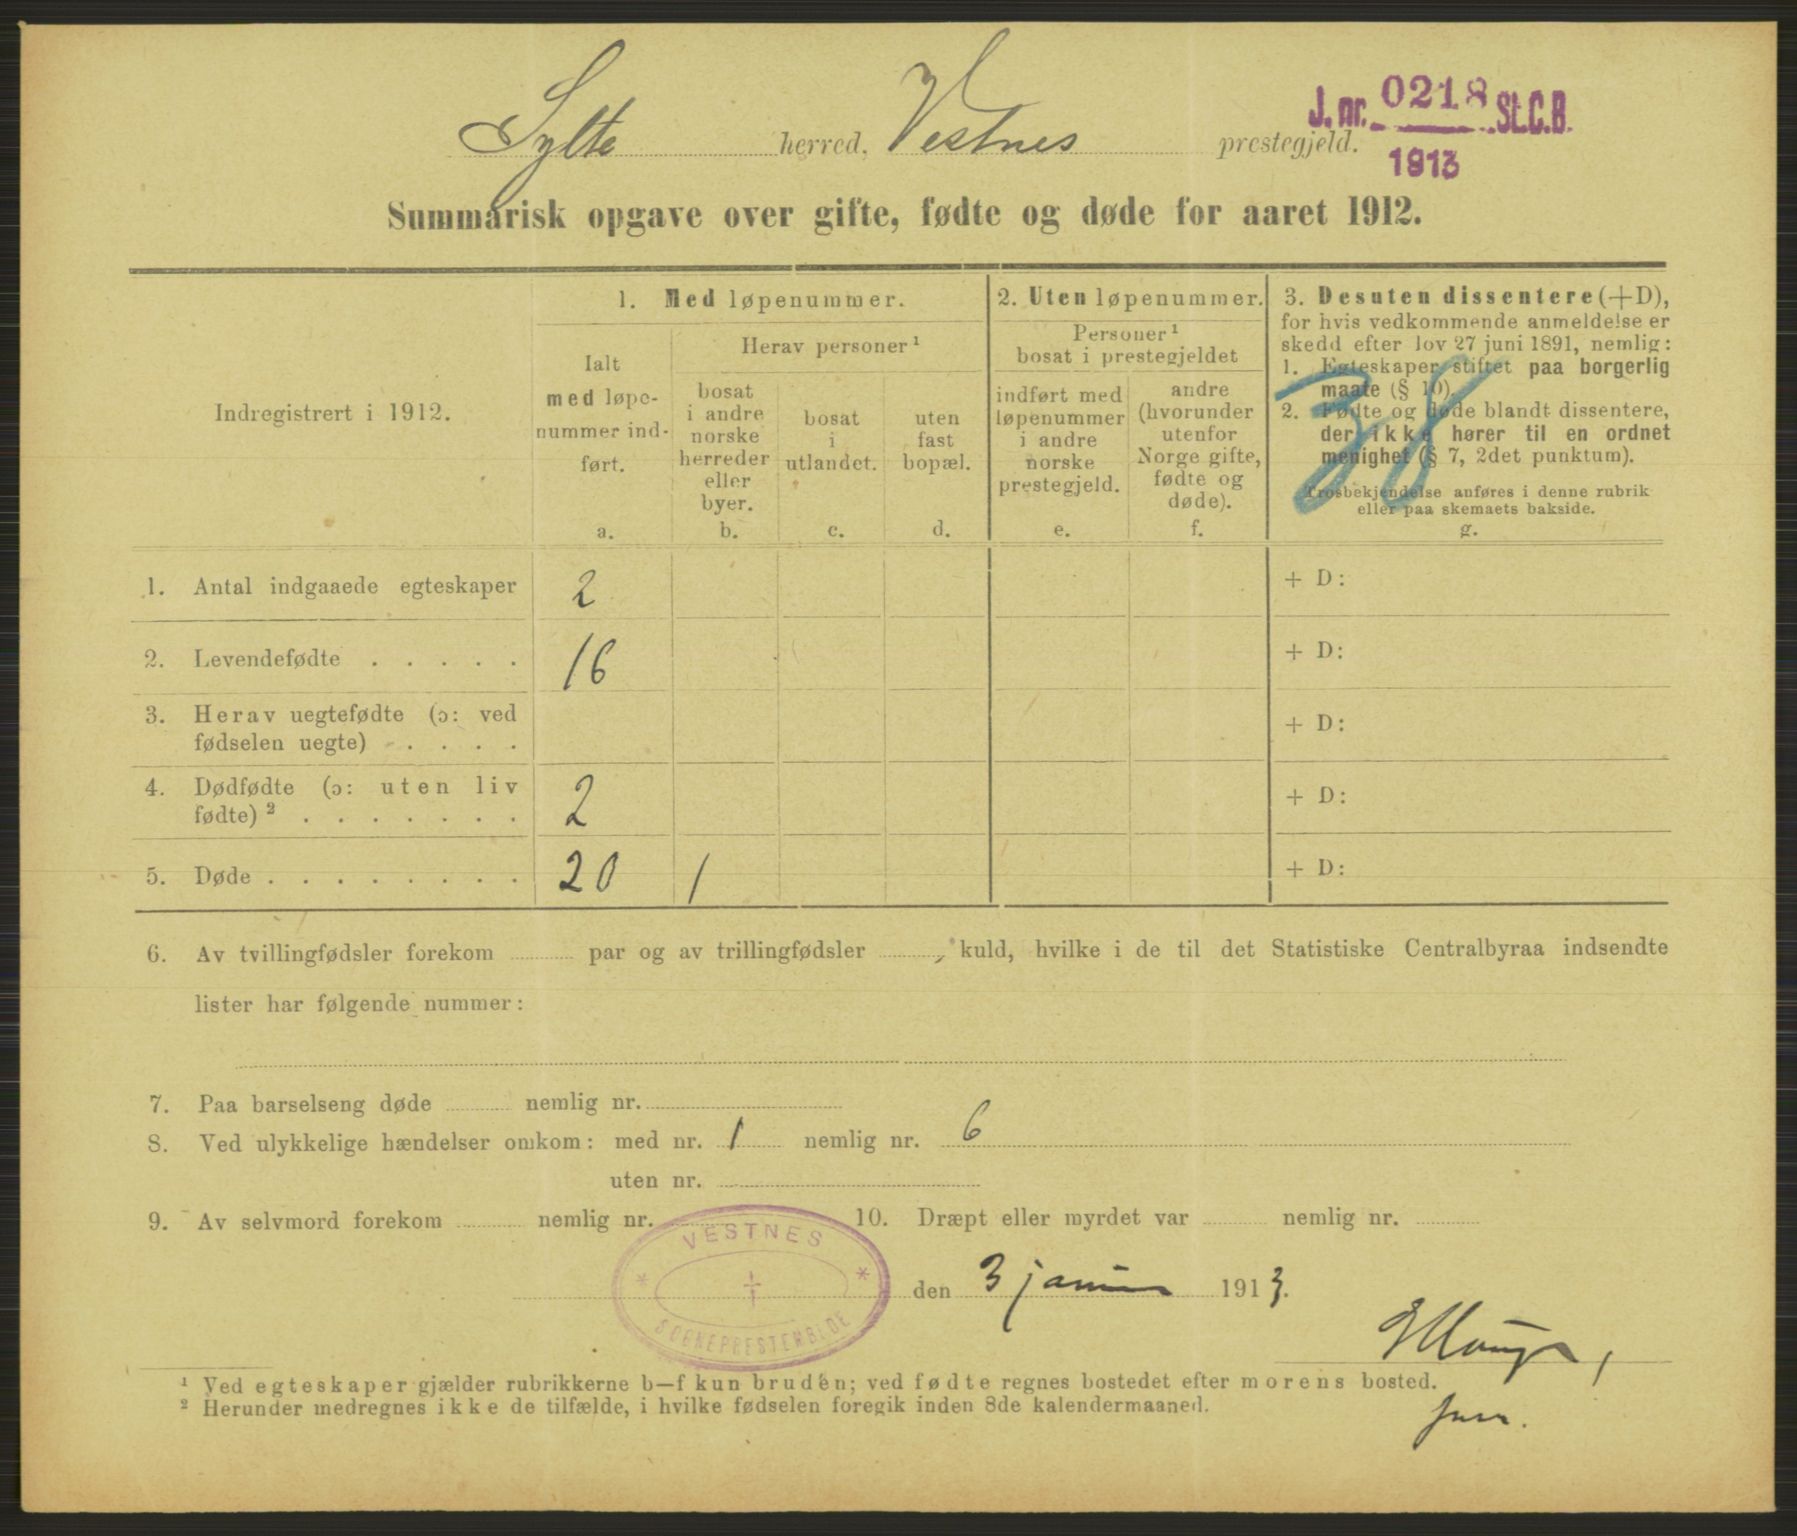 Sylte herred, Vestnes prestegjeld.
J. nr. 0218 St.C.B.
1913
Summarisk opgave over gifte, fødte og døde for aaret 1912.
Indregistrert i 1912.
1. Med løpenummer.
Ialt
med løpe-
nummer ind-
ført.
a.
Herav personer¹
bosat
i andre
norske
herreder
eller
byer.
b.
bosat
i
utlandet.
c.
uten
fast
bopæl.
d.
2. Uten løpenummer.
Personer¹
bosat i prestegjeldet
indført med
løpenummer
i andre
norske
prestegjeld.
e.
andre
(hvorunder
utenfor
Norge gifte,
fødte og
døde).
f.
3. Desuten dissentere (+D),
for hvis vedkommende anmeldelse er
skedd efter lov 27 juni 1891, nemlig:
1. Egteskaper stiftet paa borgerlig
maate (§ 10).
2. Fødte og døde blandt dissentere,
der ikke hører til en ordnet
menighet (§ 7, 2det punktum).
Trosbekjendelse anføres i denne rubrik
eller paa skemaets bakside.
g.
1. Antal indgaaede egteskaper 2 + D:
2. Levendefødte . . . . . 16 + D:
3. Herav uegtefødte (ɔ: ved
fødselen uegte) . . . . + D:
4. Dødfødte (ɔ: uten liv
fødte)² . . . . . . . 2 + D:
5. Døde . . . . . . . . 20 1 + D:
6. Av tvillingfødsler forekom par og av trillingfødsler , kuld, hvilke i de til det Statistiske Centralbyraa indsendte
lister har følgende nummer:
7. Paa barselseng døde nemlig nr.
8. Ved ulykkelige hændelser omkom: med nr. 1 nemlig nr. 6
uten nr.
9. Av selvmord forekom nemlig nr. 10. Dræpt eller myrdet var nemlig nr.
VESTNES
SOGNEPRESTEMBEDE
den 3 januar 1913.
¹ Ved egteskaper gjælder rubrikkerne b—f kun bruden; ved fødte regnes bostedet efter morens bosted.
² Herunder medregnes ikke de tilfælde, i hvilke fødselen foregik inden 8de kalendermaaned.